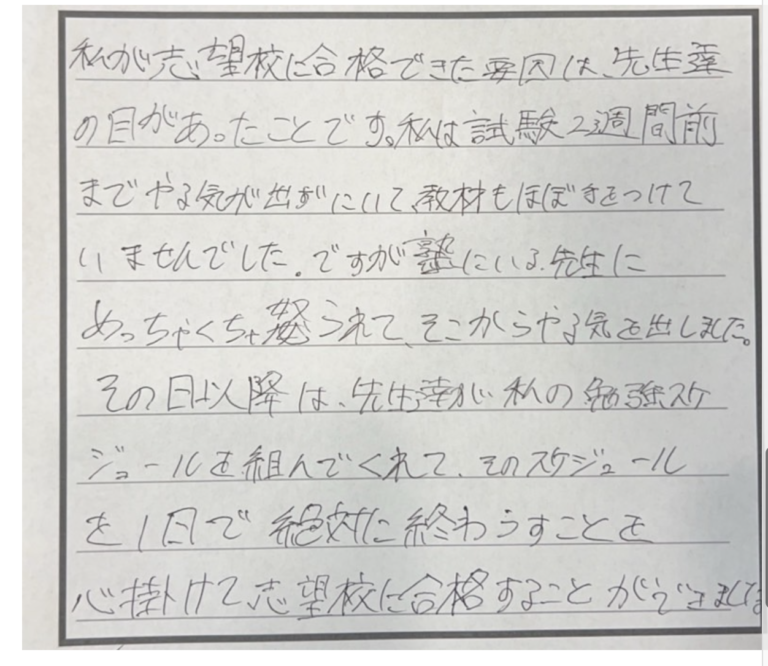 私が志望校に合格できた要因は、先生達
の目があったことです。私は試験2週間前
までやる気が出ずにいて、教材もほぼ手をつけて
いませんでした。ですが塾にいる先生に
めっちゃくちゃ怒られて、そこからやる気を出しました。
その日以降は、先生達が私の勉強スケ
ジュールを組んでくれて、そのスケジュール
を1日で絶対に終わらすことを
心掛けて志望校に合格することができました